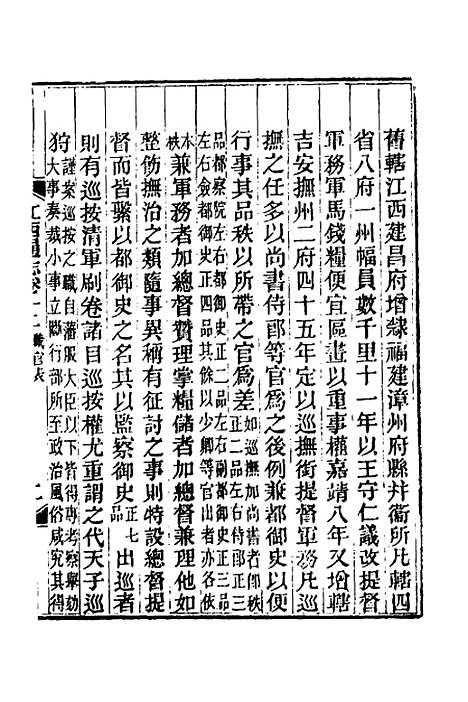 舊轄江西建昌府增隸福建漳州府縣幷衞所凡轄四
省八府一州幅員數千里十一年以王守仁議改提督
軍務軍馬錢糧便宜區畫以重事權嘉靖八年又增轄
吉安撫州二府四十五年定以巡撫銜提督軍務凡巡
撫之任多以尚書侍郎等官爲之後例兼都御史以便
行事其品秩以所帶之官爲差如巡撫加尚書者卽秩正二品左右侍郎正三
品都察院左右都御史正二品左右副都御史正三品
左右僉都御史正四品其餘以少卿等官出者亦各依
本秩兼軍務者加總督贊理掌糧儲者加總督兼理他如
整飭撫治之類隨事異稱有征討之事則特設總督提
督而皆繫以都御史之名其以監察御史正七品出巡者
則有巡按淸軍刷卷諸目巡按權尤重謂之代天子巡
狩謹案巡按之職自藩服大臣以下皆得專考察舉劾
大事奏裁小事立斷行部所至政治風俗咸究其得
江西通志卷十一職官表